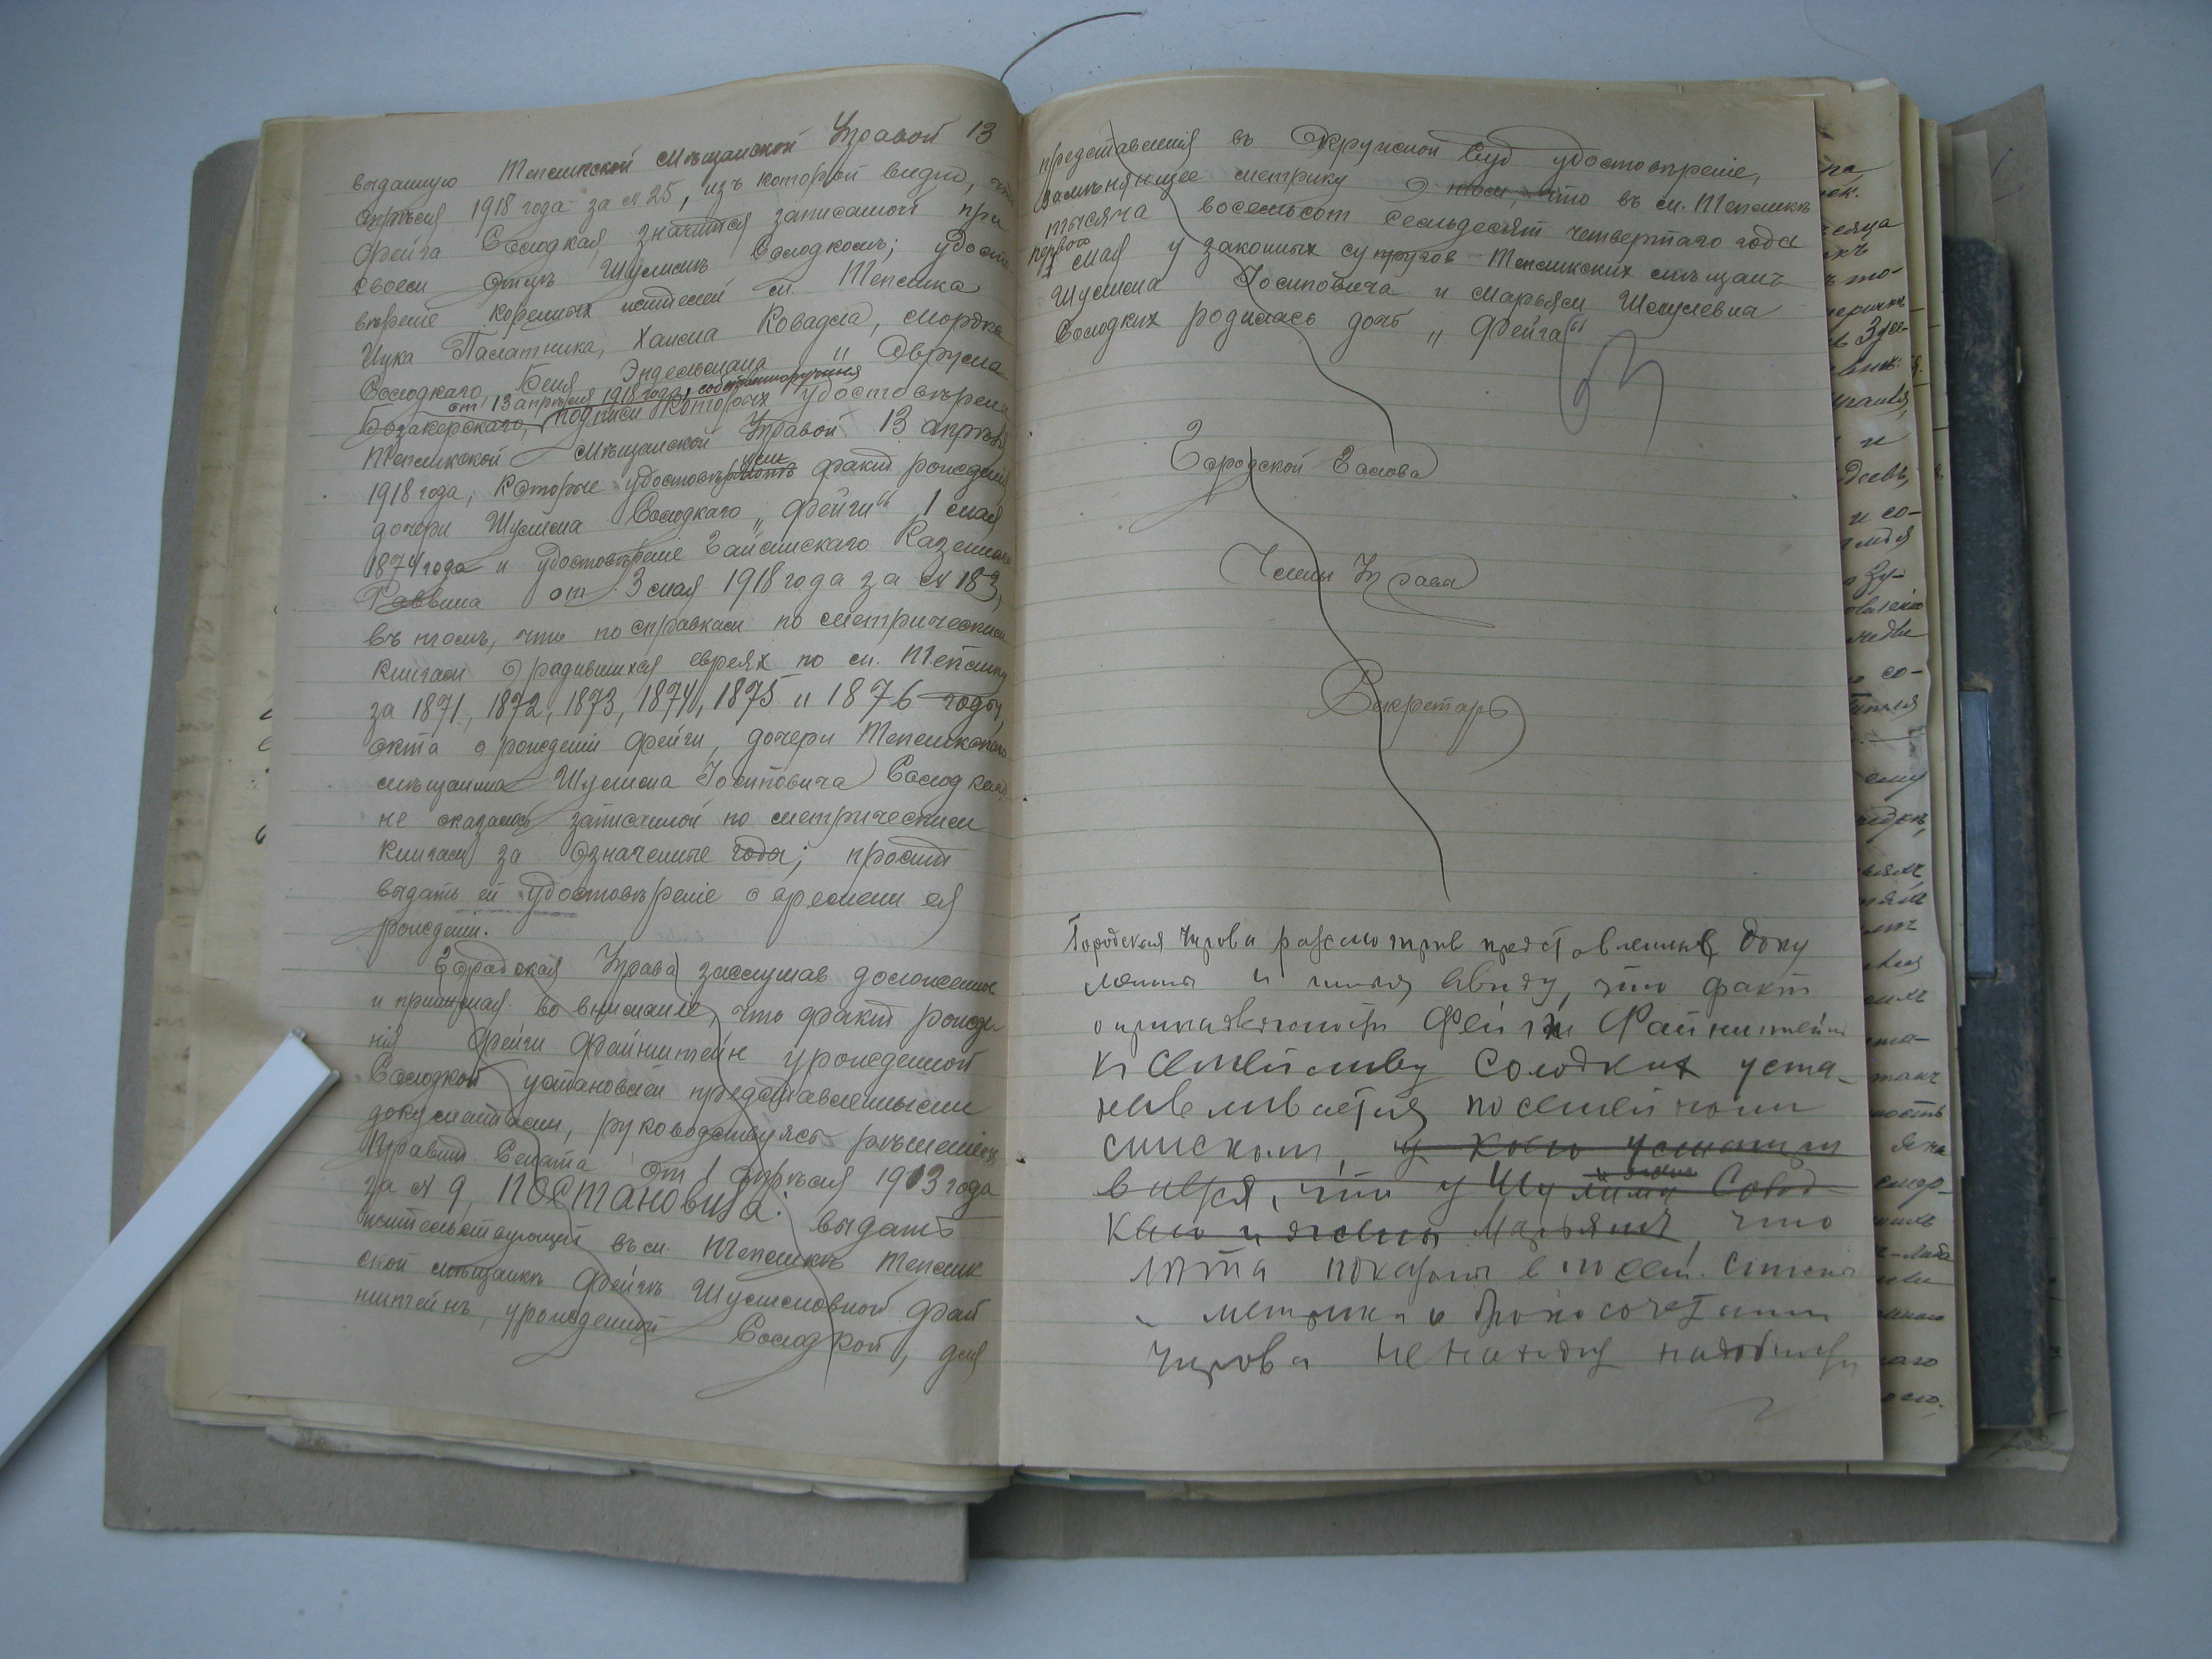 выданную Тепликской Мѣщанской Управой 13
апрѣля 1918 года за № 25, изъ которой видно, что
Фейга Солодкая значится записанной при
своем отцѣ Шулимѣ Солодкомъ; удосто-
вѣреніе коренных жителей м. Теплика
Ицка Палатника, Хаима Ковадла, Мордка
Солодкаго, Беня Эндельмана и Аврума
от 13 апрѣля 1918 года, собственноручныя
подписи которых удостовѣрены
Тепликской Мѣщанской Управой 13 апрѣля
1918 года, которые удостовѣрили факт рожденія
дочери Шулима Солодкаго „Фейги“ 1 мая
1874 года и удостовѣреніе Гайсинскаго Казеннаго
Раввина от 3 мая 1918 года за № 183,
въ томъ, что по справкам по метрическим
книгам о родившихся евреях по м. Теплику
за 1871, 1872, 1873, 1874, 1875 и 1876 годы,
акта о рожденіи Фейги, дочери Тепликскаго
мѣщанина Шулима Іосиповича Солодкаго
не оказалось записанной по метрическим
книгам за означенные года; просит
выдать ей удостовѣреніе о времени ея
рожденія.
Городская Управа заслушав доложенное
и принимая во вниманіе, что факт рожде-
нія Фейги Файнштейн урожденной
Солодкой установлен представленными
документами, руководствуясь рѣшеніем
Правит. Сената от 1 апрѣля 1913 года
за № 9, постановила: выдать
жительствующей въ м. Тепликѣ Теплик
ской мѣщанкѣ Фейгѣ Шулимовной Фай
нштейнъ, урожденной Солодкой, для
представленія въ Окружной Суд удостовѣреніе,
замѣняющее метрику о том, что въ м. Тепликѣ
тысяча восемьсот семьдесят четвертаго года
перваго
1 мая у законных супругов Тепликских мѣщанъ
Шулима Іосиповича и Марьям Шмулевна
Солодких родилась дочь „Фейга“
Городской Голова
Члены Управы
Секретарь
Городская Управа разсмотрив представленные доку
менты и имея ввиду, что факт
о принадлежности Фейги Файнштейн
к семейству Солодких уста-
навливается посемейным
списком, у коего усматри
вается, что у Шулима Солод-
каго и жены Марьям, что
лѣта показаны в посем. списке
метрики о бракосочетании
Управа не находит надобности